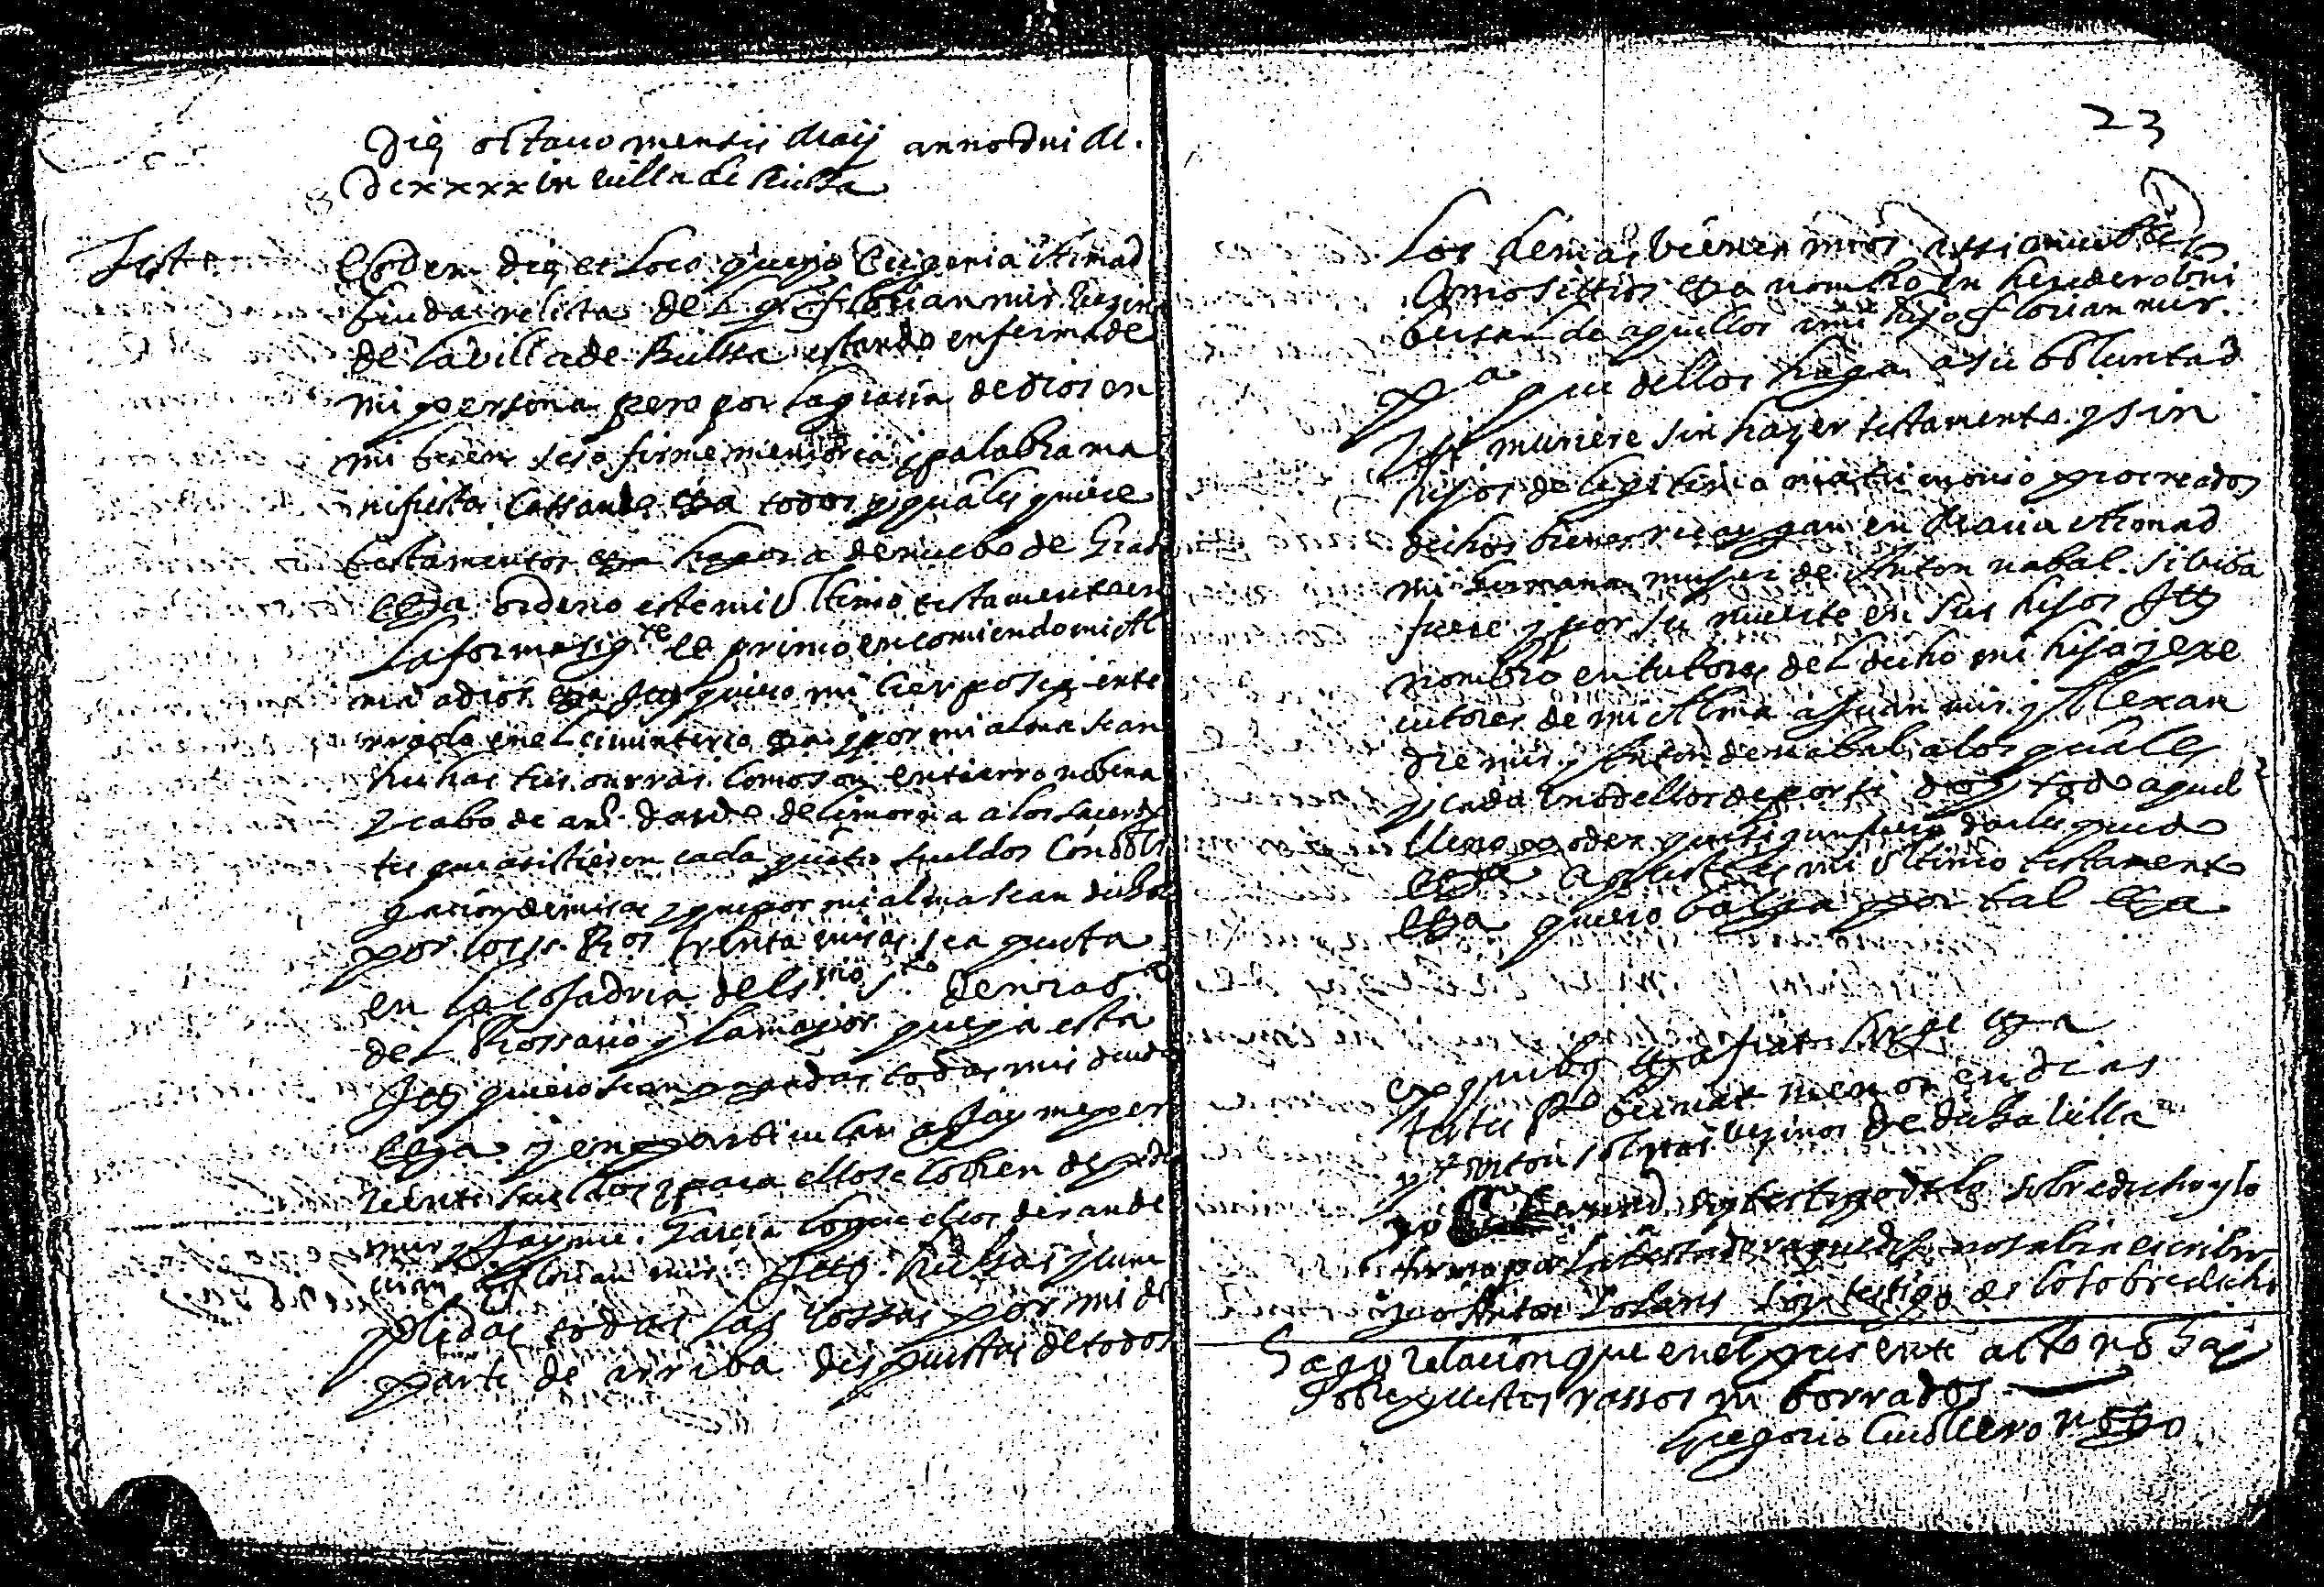 Die octavo mensis Maij anno Dni M.
Dcxxxx in villa de Rubba
Testo
Eodem die et loco que yo Eugenia Monad
biuda relicta del qo florian mir vezino
de la villa de Bulssa estando enferma de
mi persona pero por la gracia de dios en
mi buen seso firme memoria y palabra ma
nifiesta cassando etza todos y quales quiere
testamentos etza hagora de nuebo de Grado
etza ordeno este mi Ultimo testamento en
la forma sigte et primo encomiendo mi Al
ma a dios etza Itt quiero mi cuerpo sea ente
rrado en el ciminterio etza y por mi alma sean
hechas tres onrras como son entierro nobena
y cabo de año dando de limosna a los sacerdo
tes que asistieren cada quatro sueldos con obli
gacion de misa y que por mi alma sean dichas
por los ss. Ros trenta misas sea puesta
en la cofadria del smo sto de nra sa
del Rossario y la mayor que ya esta
Itt quiero sean pagadas todas mis deudas
etza y en particular a Jayme per
veinte sueldos y para ello se cobren de pedro
mir y Jayme Garcia lo que ellos deran de
a florian mir. Itt hechas y cum
plidas todas las cossas por mi de
parte de arriba dispuestas de todos
23
los demas bienes mios assi muebles
como sittios etza nombro en heredero uni
bersal de aquellos a mi hijo florian mir.
pa que dellos haga a su boluntad
Y si muriere sin hazer testamento y sin
hijos de legitimo matrimonio procreados
dichos bienes recaygan en Maria Monad
mi hermana muger de Anton nabal si biba
fuere y por su muerte en sus hijos Itt
nombro en tutores del dicho mi hijo y exe
cutores de mi Alma a Juan mir y Alexan
dre mir y Anton de nabal a los quales
y cada uno dellos de por si doy todo aquel
lleno poder que sigun fuero darles puedo
etza aqueste es mi ultimo testamento
etza quiero balga por tal etza
ex quibus etza fiat large etza
testes Po bernat menor en dias
y Anton solanas vezinos de dicha villa
yo bernad soy testigo de lo sobredicho y lo
firmo por la testadora que dixo no sabia escribir
yo Anton Solans soy testigo de lo sobredicho
Hago relacion que en el presente acto no hay
sobrepuestos rassos ni borrados
Gregorio Guillero notto